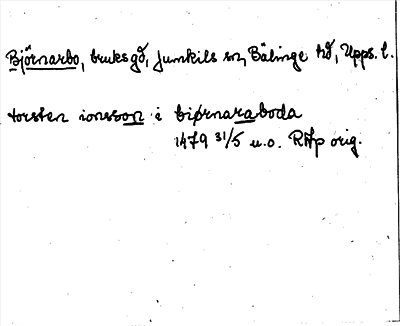 Björnarbo, bruksgd, Jumkils sn, Bälinge hd, Upps. l.
torsten ionsson i biørnaraboda
1479 31/5 u.o. RAp orig.